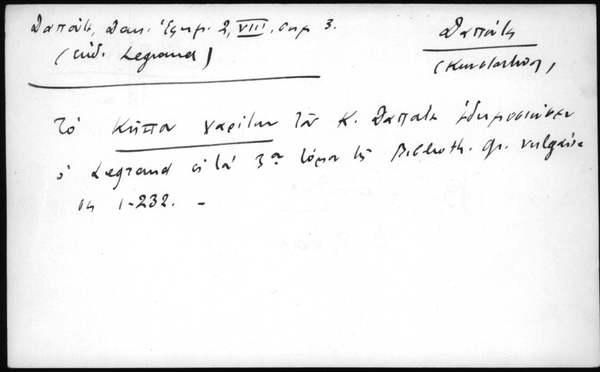 Δαπόντε, Δακ. Ἐφημ. 2, VIII, σημ 3.
(ἐκδ. Legrand)
Δαπόντε
(Κωνσταντῖνος)
Τὸ Κῆπον χαρίτων τοῦ Κ. Δαπόντε ἐδημοσίευσεν
ὁ Legrand εἰς τὸ 3ον τόμον τῆς Biblioth. gr. vulgaire
σελ 1-232. -